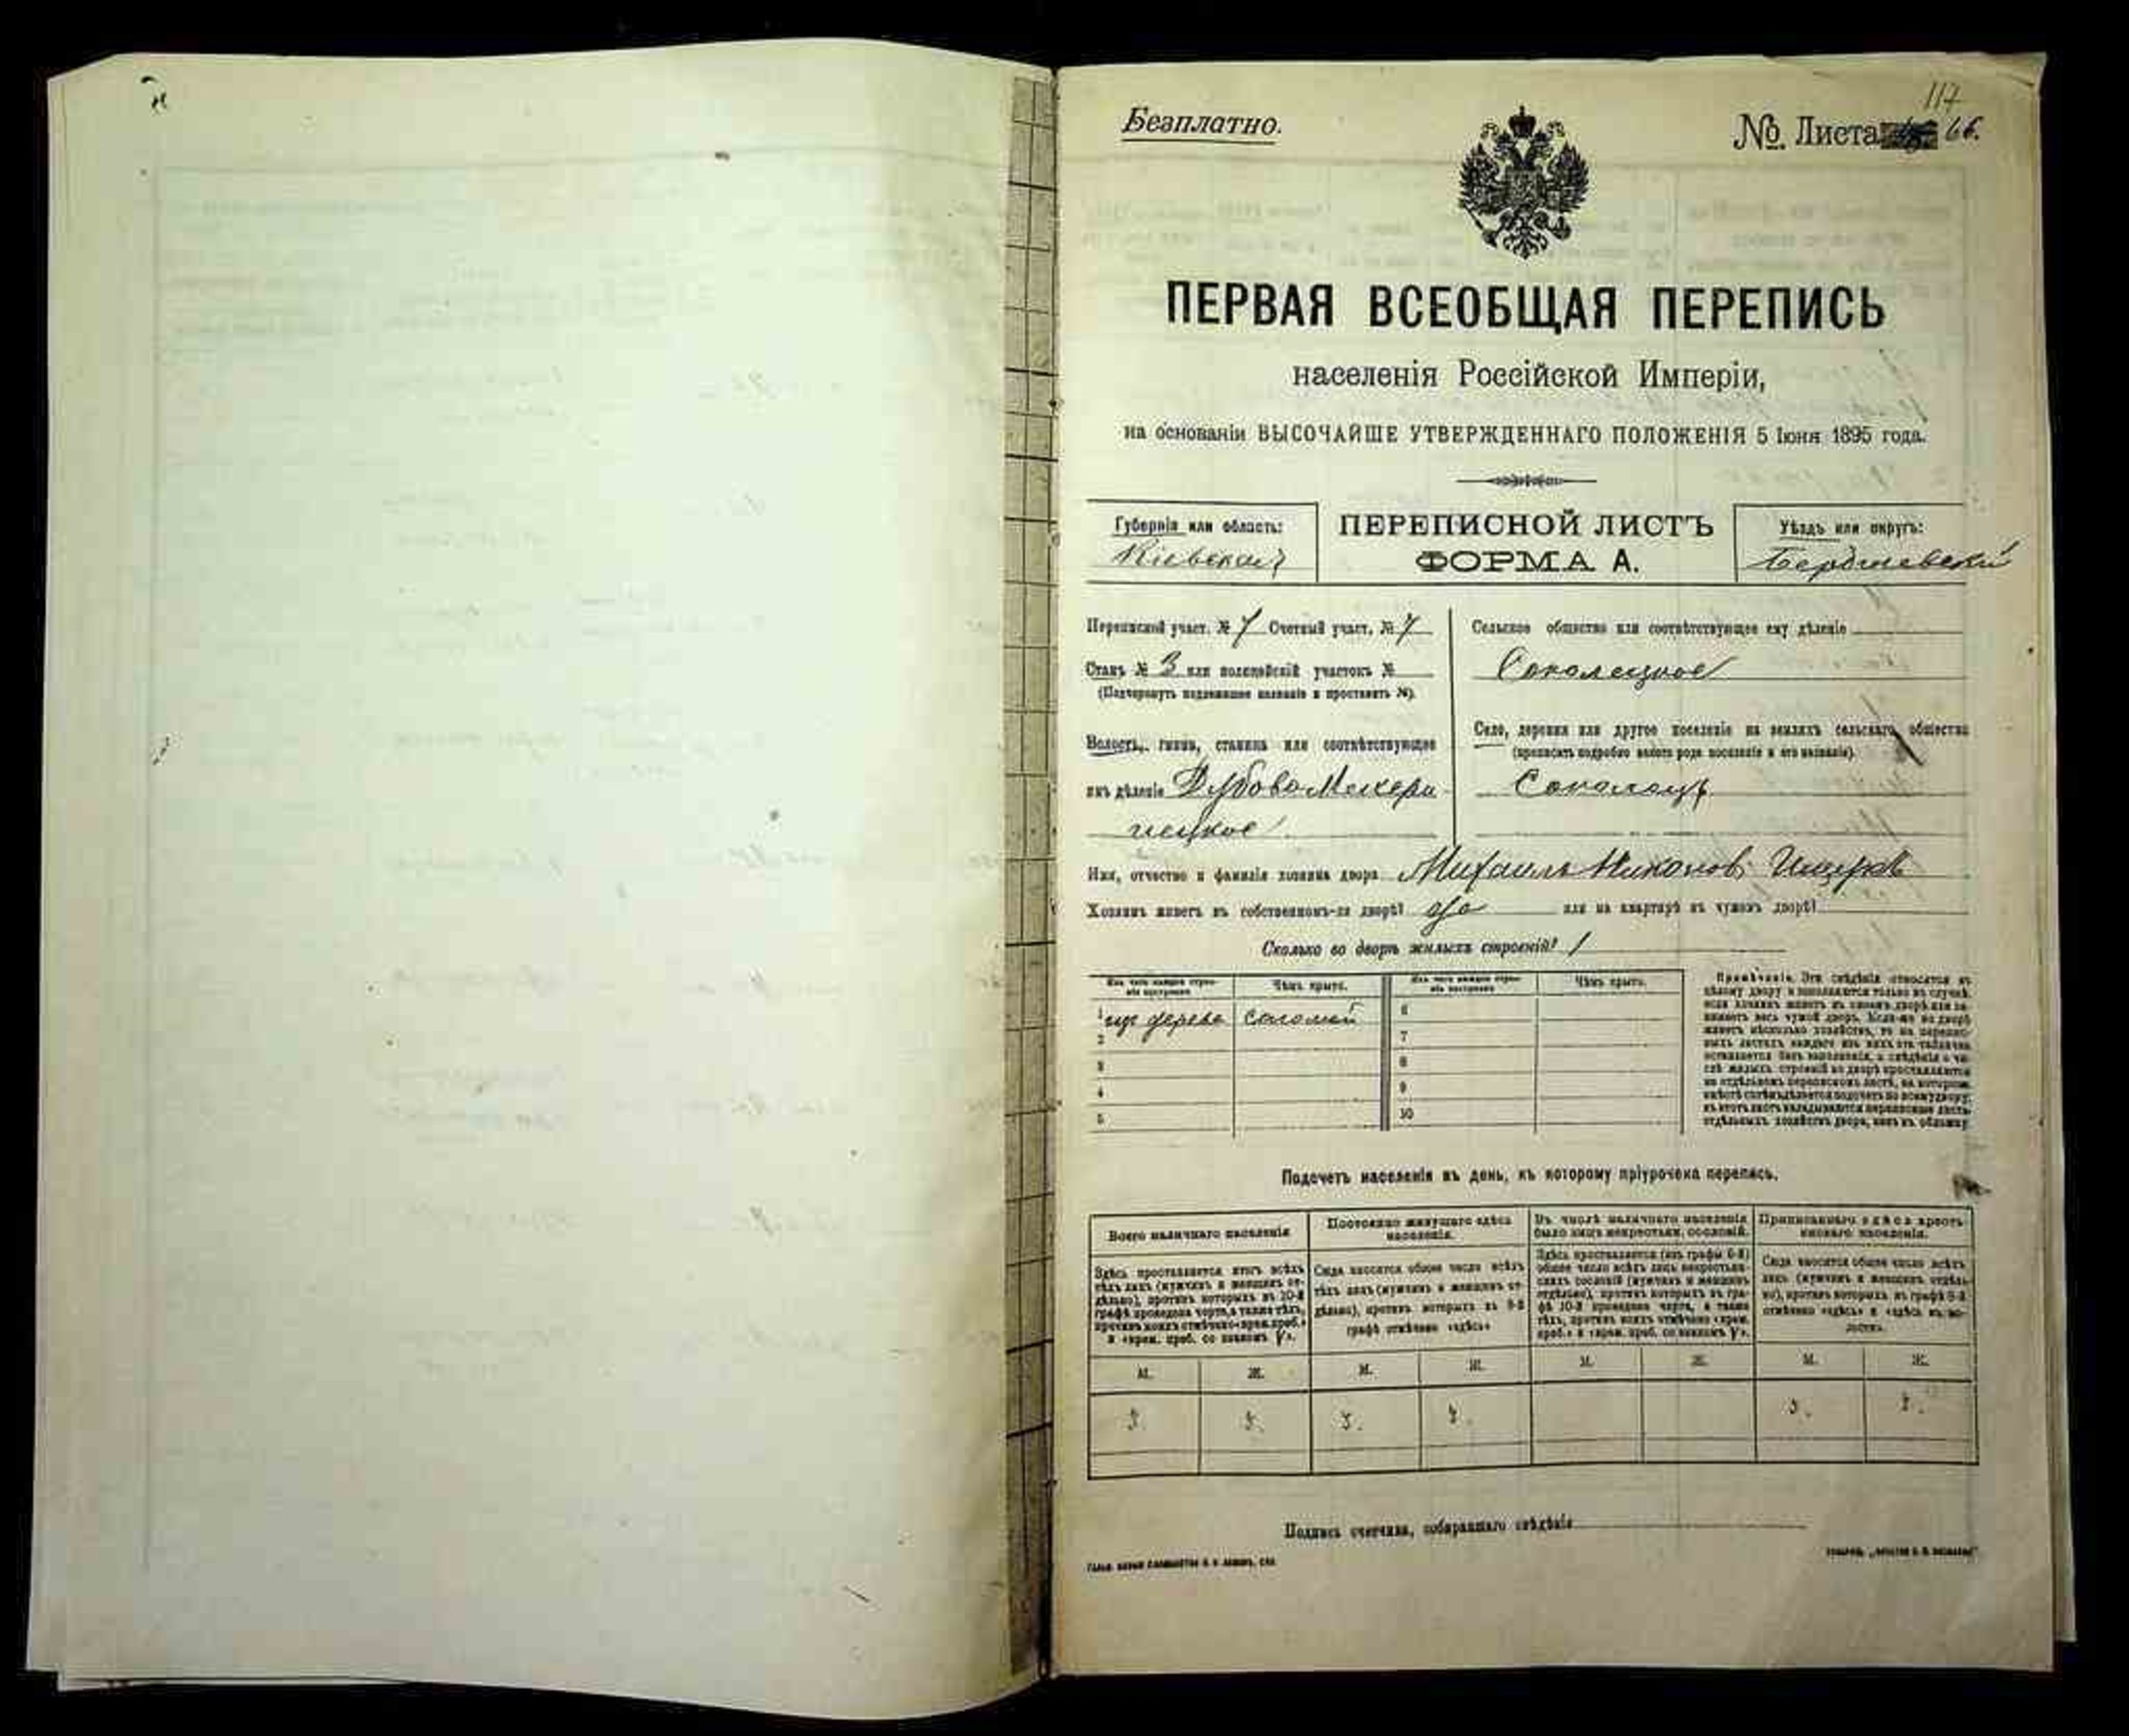 117
Безплатно.
№ Листа 66.
ПЕРВАЯ ВСЕОБЩАЯ ПЕРЕПИСЬ
населенія Россійской Имперіи,
на основаніи ВЫСОЧАЙШЕ УТВЕРЖДЕННАГО ПОЛОЖЕНІЯ 5 Іюня 1895 года.
Губернія или область:
Кіевская
ПЕРЕПИСНОЙ ЛИСТЪ
ФОРМА А.
Уѣздъ или округъ:
Бердичевскій
Переписной участ. № 7 Счетный участ. № 7
Станъ № 3 или полицейскій участокъ №
(Подчеркнуть надлежащее названіе и проставить №).
Волость, гмина, станица или соотвѣтствующее
имъ дѣленіе
Сельское общество или соотвѣтствующее ему дѣленіе
Соколецкое
Село, деревня или другое поселеніе на земляхъ сельскаго общества
(прописать подробно какого рода поселеніе и его названіе).
Соколецъ
Имя, отчество и фамилія хозяина двора Михаилъ Никоновъ
Хозяинъ живетъ въ собственномъ-ли дворѣ? да или на квартирѣ въ чужомъ дворѣ?
Сколько во дворѣ жилыхъ строеній? 1
Изъ чего каждое строеніе построено
Чѣмъ крыто.
Изъ чего каждое строеніе построено
Чѣмъ крыто.
1 изъ дерева соломой
2
3
4
5
6
7
8
9
10
Примѣчаніе. Эти свѣдѣнія относятся къ
цѣлому двору и заполняются только въ случаѣ,
если хозяинъ живетъ въ своемъ дворѣ или за-
нимаетъ весь чужой дворъ. Если-же во дворѣ
живетъ нѣсколько хозяйствъ, то на перепис-
ныхъ листахъ каждаго изъ нихъ эта табличка
оставляется безъ заполненія, а свѣдѣнія о чи-
слѣ жилыхъ строеній во дворѣ проставляются
на отдѣльномъ переписномъ листѣ, на которомъ
Подсчетъ населенія въ день, къ которому пріурочена перепись.
Всего наличнаго населенія
Постоянно живущаго здѣсь
населенія.
Въ числѣ наличнаго населенія
было лицъ некрестьян. сословій.
Приписаннаго здѣсь кресть-
янскаго населенія.
Здѣсь проставляется итогъ всѣхъ
тѣхъ лицъ (мужчинъ и женщинъ от-
дѣльно), противъ которыхъ въ 10-й
графѣ проведена черта, а также тѣхъ,
противъ коихъ отмѣчено «врем. преб.»
и «врем. преб. со знакомъ V».
Сюда вносится общее число всѣхъ
тѣхъ лицъ (мужчинъ и женщинъ от-
дѣльно), противъ которыхъ въ 9-й
графѣ отмѣчено «здѣсь»
Здѣсь проставляется (изъ графы 6-й)
общее число всѣхъ лицъ некрестьян-
скихъ сословій (мужчинъ и женщинъ
отдѣльно), противъ которыхъ въ гра-
фѣ 10-й проведена черта, а также
тѣхъ, противъ коихъ отмѣчено «врем.
преб.» и «врем. преб. со знакомъ V».
Сюда вносится общее число всѣхъ
лицъ (мужчинъ и женщинъ отдѣль-
но), противъ которыхъ въ графѣ 8-й
отмѣчено «здѣсь» и «здѣсь въ во-
лости».
М. Ж. М. Ж. М. Ж. М. Ж.
Подпись счетчика, собиравшаго свѣдѣнія